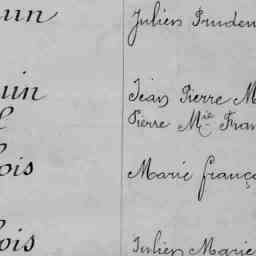 Julien Pruden
Jean Pierre M
Pierre Mie Fran
ois Marie franç
ois Julien Marie